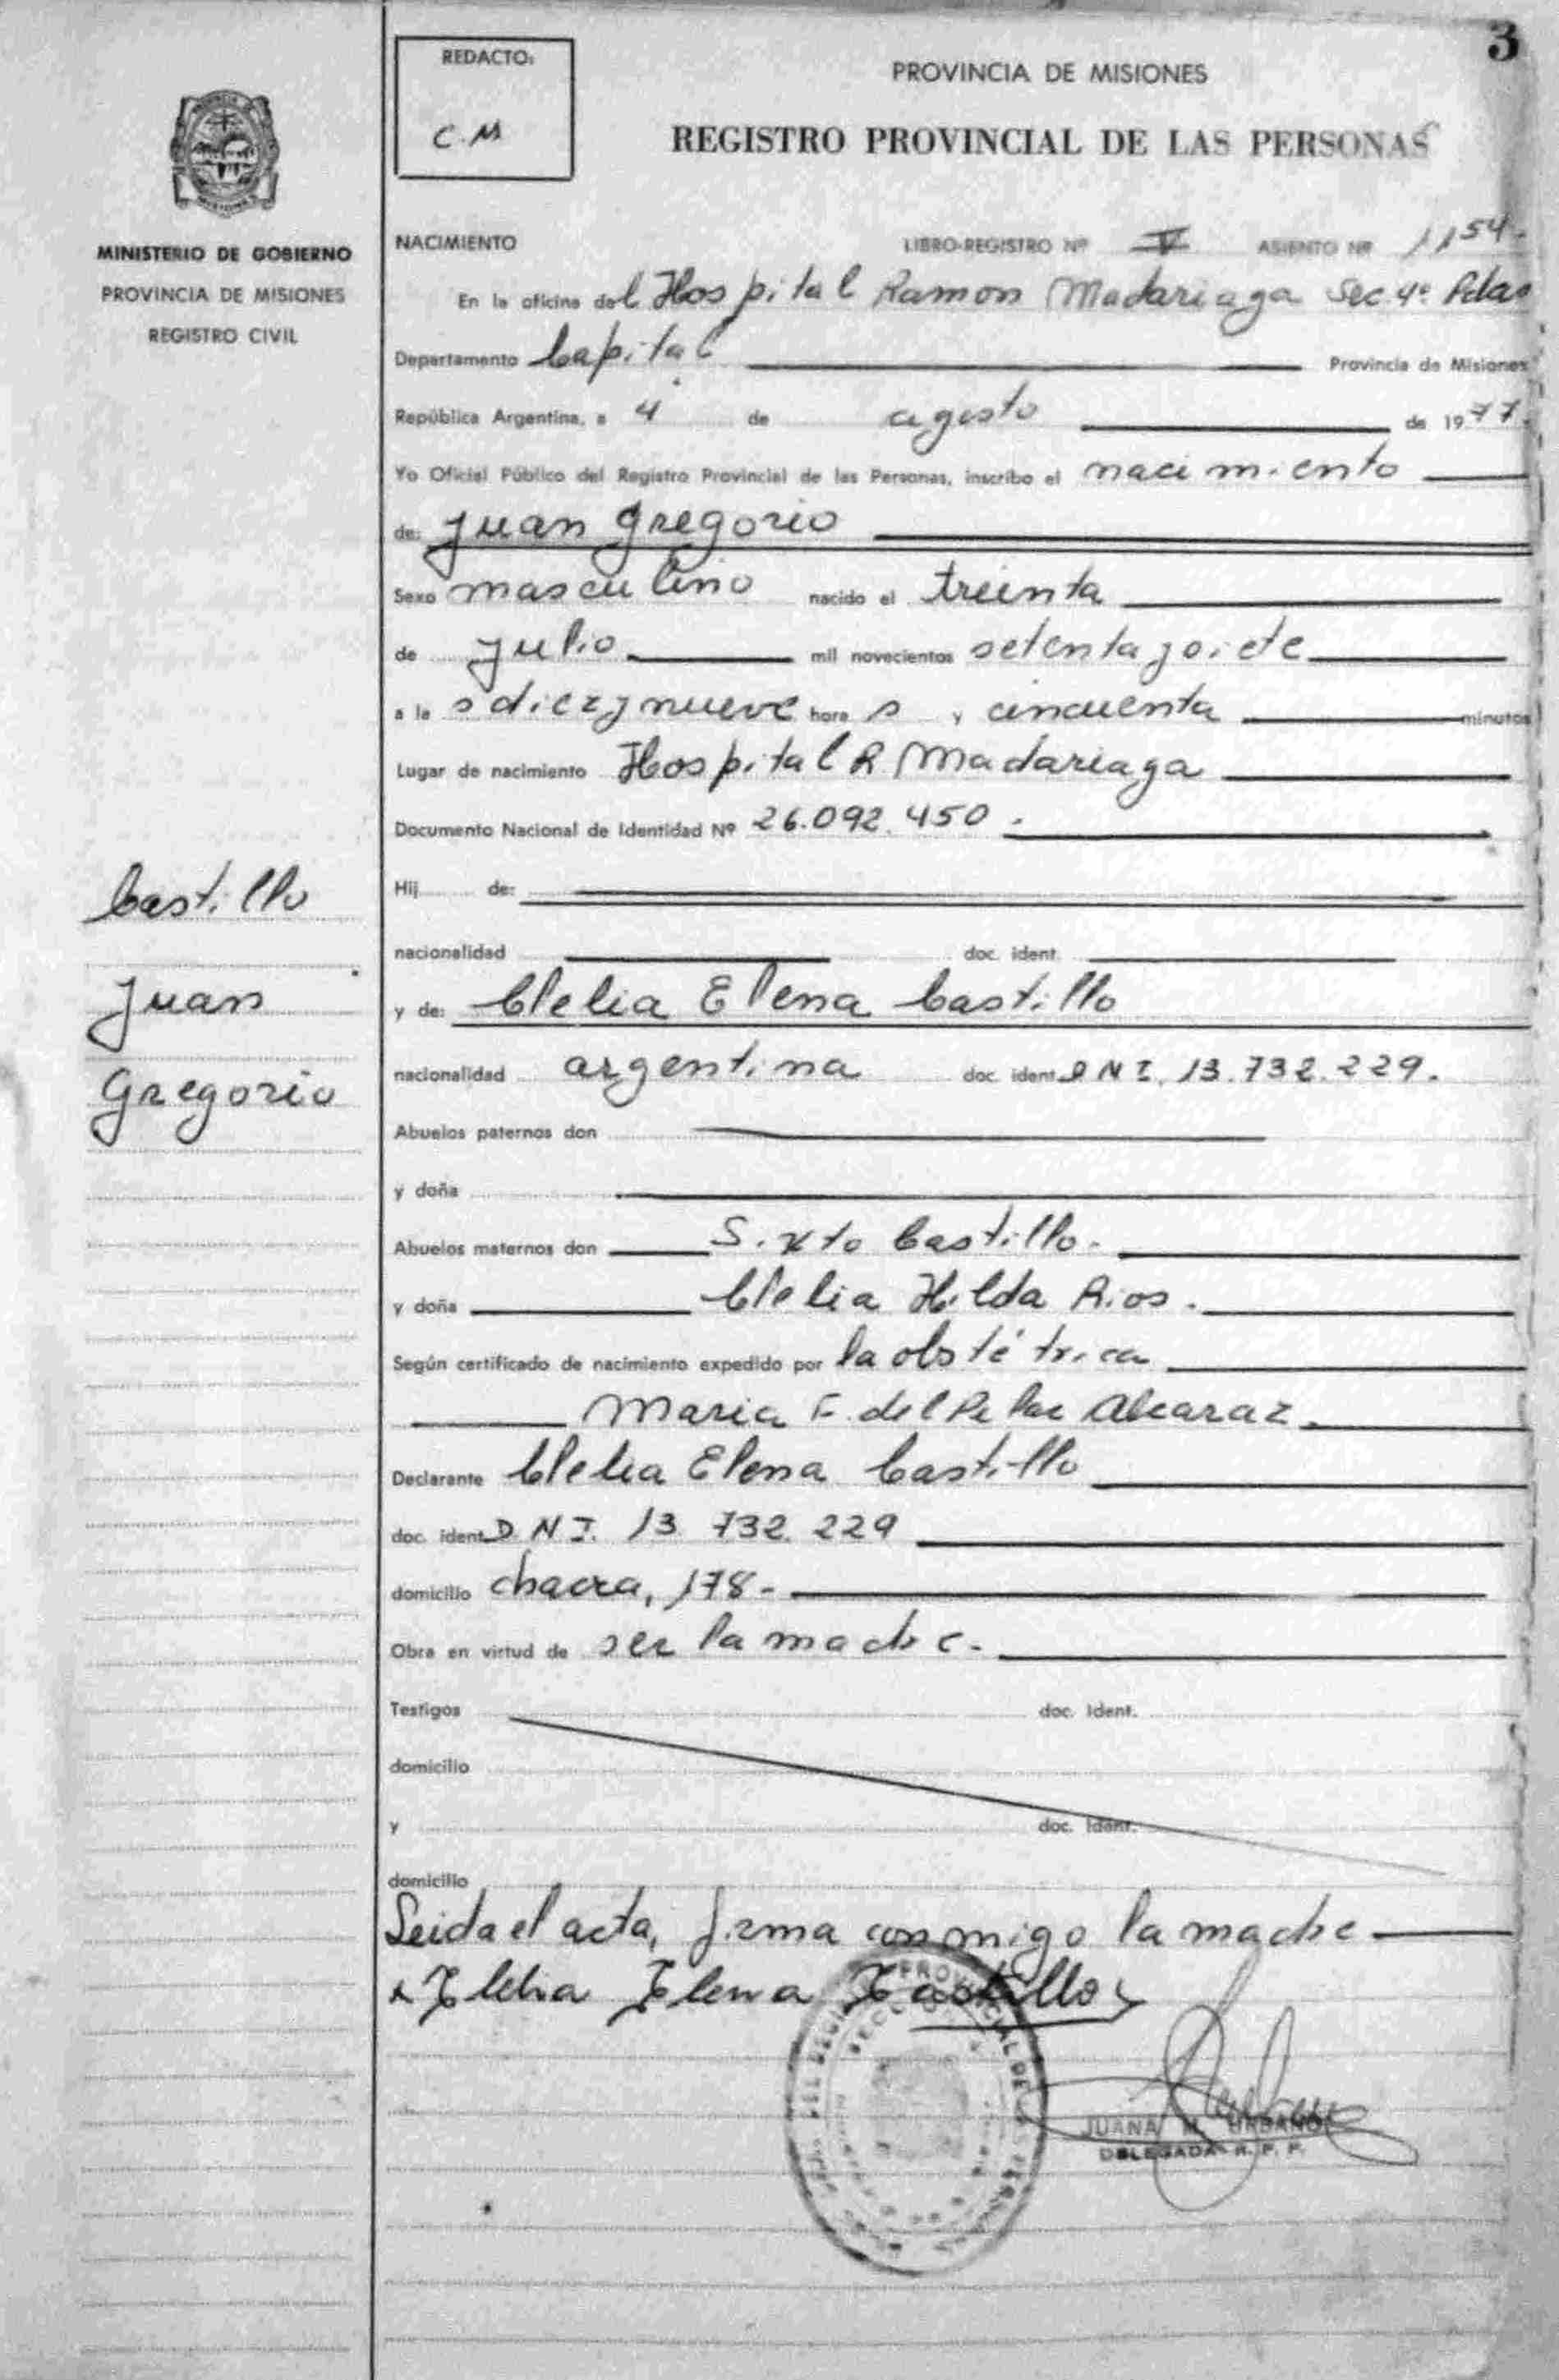 3
REDACTO:
C.M
PROVINCIA DE MISIONES
REGISTRO PROVINCIAL DE LAS PERSONAS
MINISTERIO DE GOBIERNO
PROVINCIA DE MISIONES
REGISTRO CIVIL
NACIMIENTO LIBRO-REGISTRO Nº V ASIENTO Nº 1154-
En la oficina del Hospital Ramon Madariaga Sec. 4º Pdas
Departamento Capital Provincia de Misiones
República Argentina, a 4 de agosto de 1977.
Yo Oficial Público del Registro Provincial de las Personas, inscribo el nacimiento
de: Juan Gregorio
Sexo masculino nacido el treinta
de julio mil novecientos setenta y siete
a las diez y nueve horas y cincuenta minutos
Lugar de nacimiento Hospital R. Madariaga
Documento Nacional de Identidad Nº 26.092.450.
Hij de:
nacionalidad doc. ident.
y de: Clelia Elena Castillo
nacionalidad argentina doc. ident. D.N.I. 13.732.229.
Abuelos paternos don
y doña
Abuelos maternos don Sixto Castillo.
y doña Clelia Hilda Rios.
Según certificado de nacimiento expedido por la obstétrica
Maria F. del Pilar Alcaraz.
Declarante Clelia Elena Castillo
doc. ident. D.N.I. 13.732.229
domicilio chacra, 178-
Obra en virtud de ser la madre.
Testigos doc. Ident.
domicilio
y doc. Ident.
domicilio
Leida el acta, firma conmigo la madre
Clelia Elena Castillo
JUANA M. URBANO
DELEGADA R. P. P.
Castillo
Juan
Gregorio